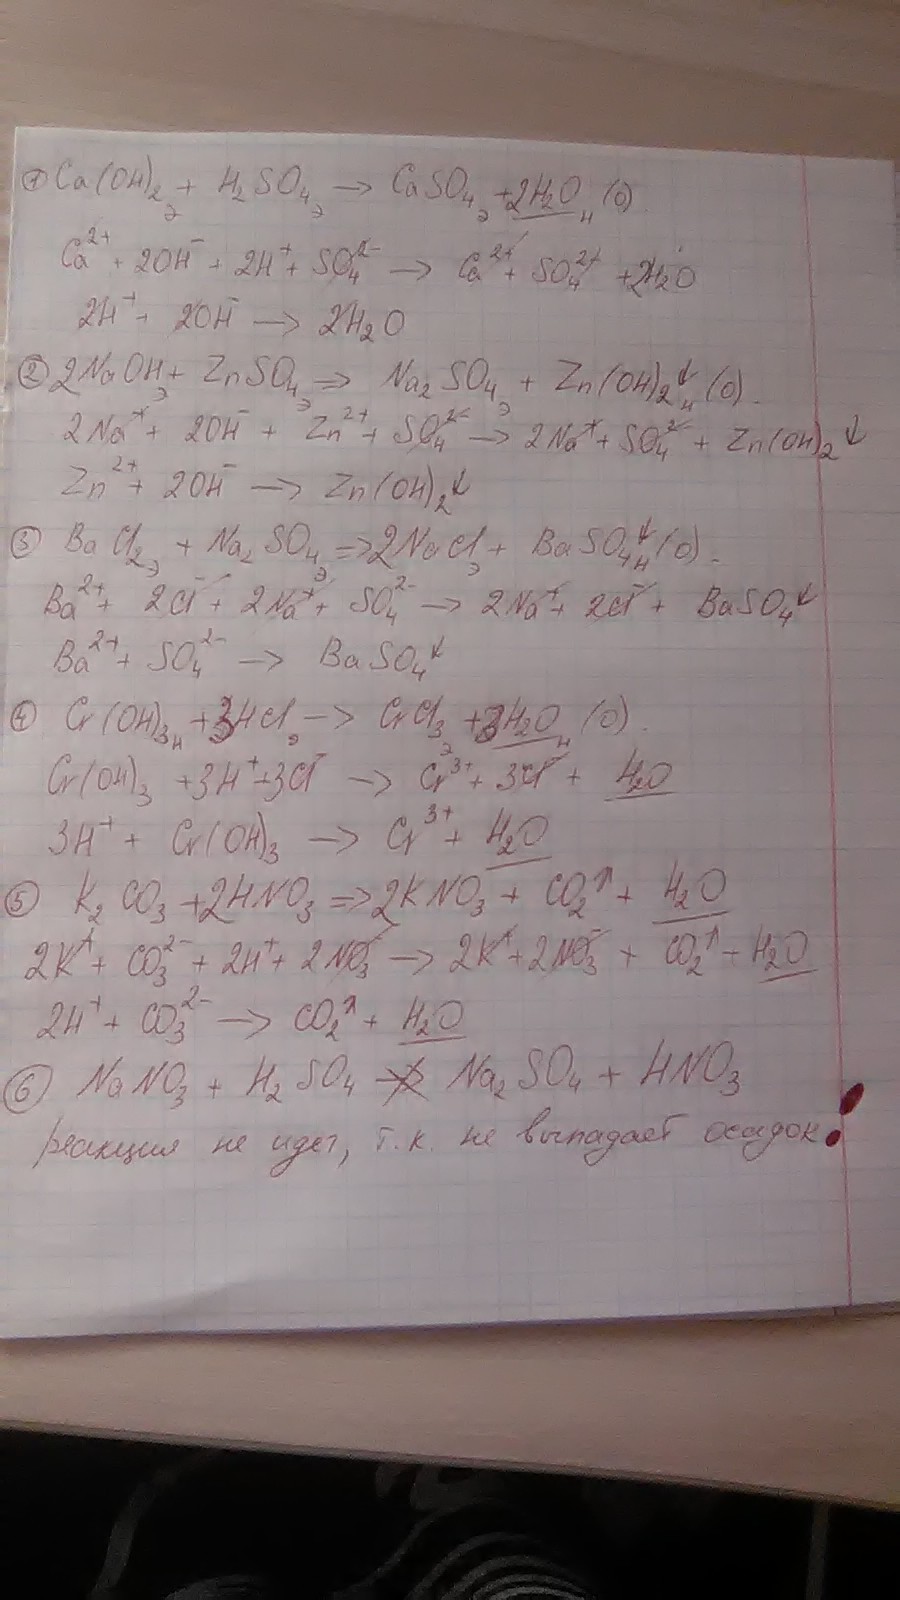 ① Ca(OH)₂э + H₂SO₄э → CaSO₄э + 2H₂Oн (о).
Ca²⁺ + 2OH⁻ + 2H⁺ + SO₄²⁻ → Ca²⁺ + SO₄²⁺ + 2H₂O
2H⁺ + 2OH⁻ → 2H₂O
② 2NaOHэ + ZnSO₄э => Na₂SO₄э + Zn(OH)₂↓н (о).
2Na⁺ + 2OH⁻ + Zn²⁺ + SO₄²⁻ → 2Na⁺ + SO₄²⁻ + Zn(OH)₂↓
Zn²⁺ + 2OH⁻ → Zn(OH)₂↓
③ BaCl₂э + Na₂SO₄э => 2NaClэ + BaSO₄↓н (о).
Ba²⁺ + 2Cl⁻ + 2Na⁺ + SO₄²⁻ → 2Na⁺ + 2Cl⁻ + BaSO₄↓
Ba²⁺ + SO₄²⁻ → BaSO₄↓
④ Cr(OH)₃н + 3HClэ → CrCl₃э + 3H₂Oн (о).
Cr(OH)₃ + 3H⁺ + 3Cl⁻ → Cr³⁺ + 3Cl⁻ + H₂O
3H⁺ + Cr(OH)₃ → Cr³⁺ + H₂O
⑤ K₂CO₃ + 2HNO₃ => 2KNO₃ + CO₂↑ + H₂O
2K⁺ + CO₃²⁻ + 2H⁺ + 2NO₃⁻ → 2K⁺ + 2NO₃⁻ + CO₂↑ + H₂O
2H⁺ + CO₃²⁻ → CO₂↑ + H₂O
⑥ NaNO₃ + H₂SO₄ ↛ Na₂SO₄ + HNO₃
реакция не идет, т.к. не выпадает осадок!